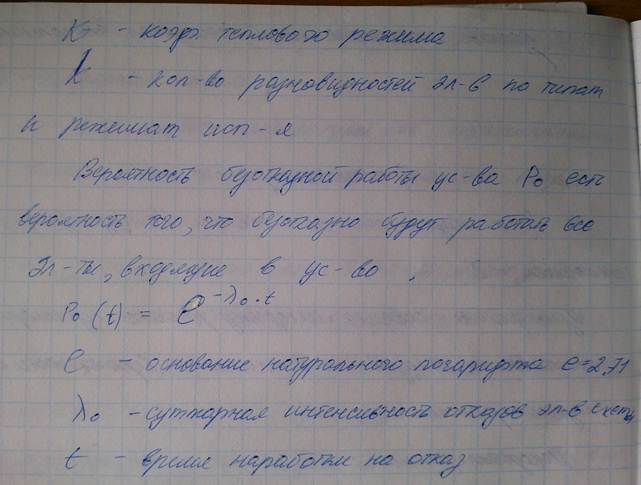 Kэ - коэф. теплового режима
K - кол-во разновидностей эл-в по типам
и режимам исп-я
Вероятность безотказной работы ус-ва P₀ есть
вероятность того, что безотказно будут работать все
эл-ты, входящие в ус-во.
P₀ (t) = e^-λ₀·t
e - основание натурального логарифма e=2,71
λ₀ - суммарная интенсивность отказов эл-в схемы
t - время наработки на отказ